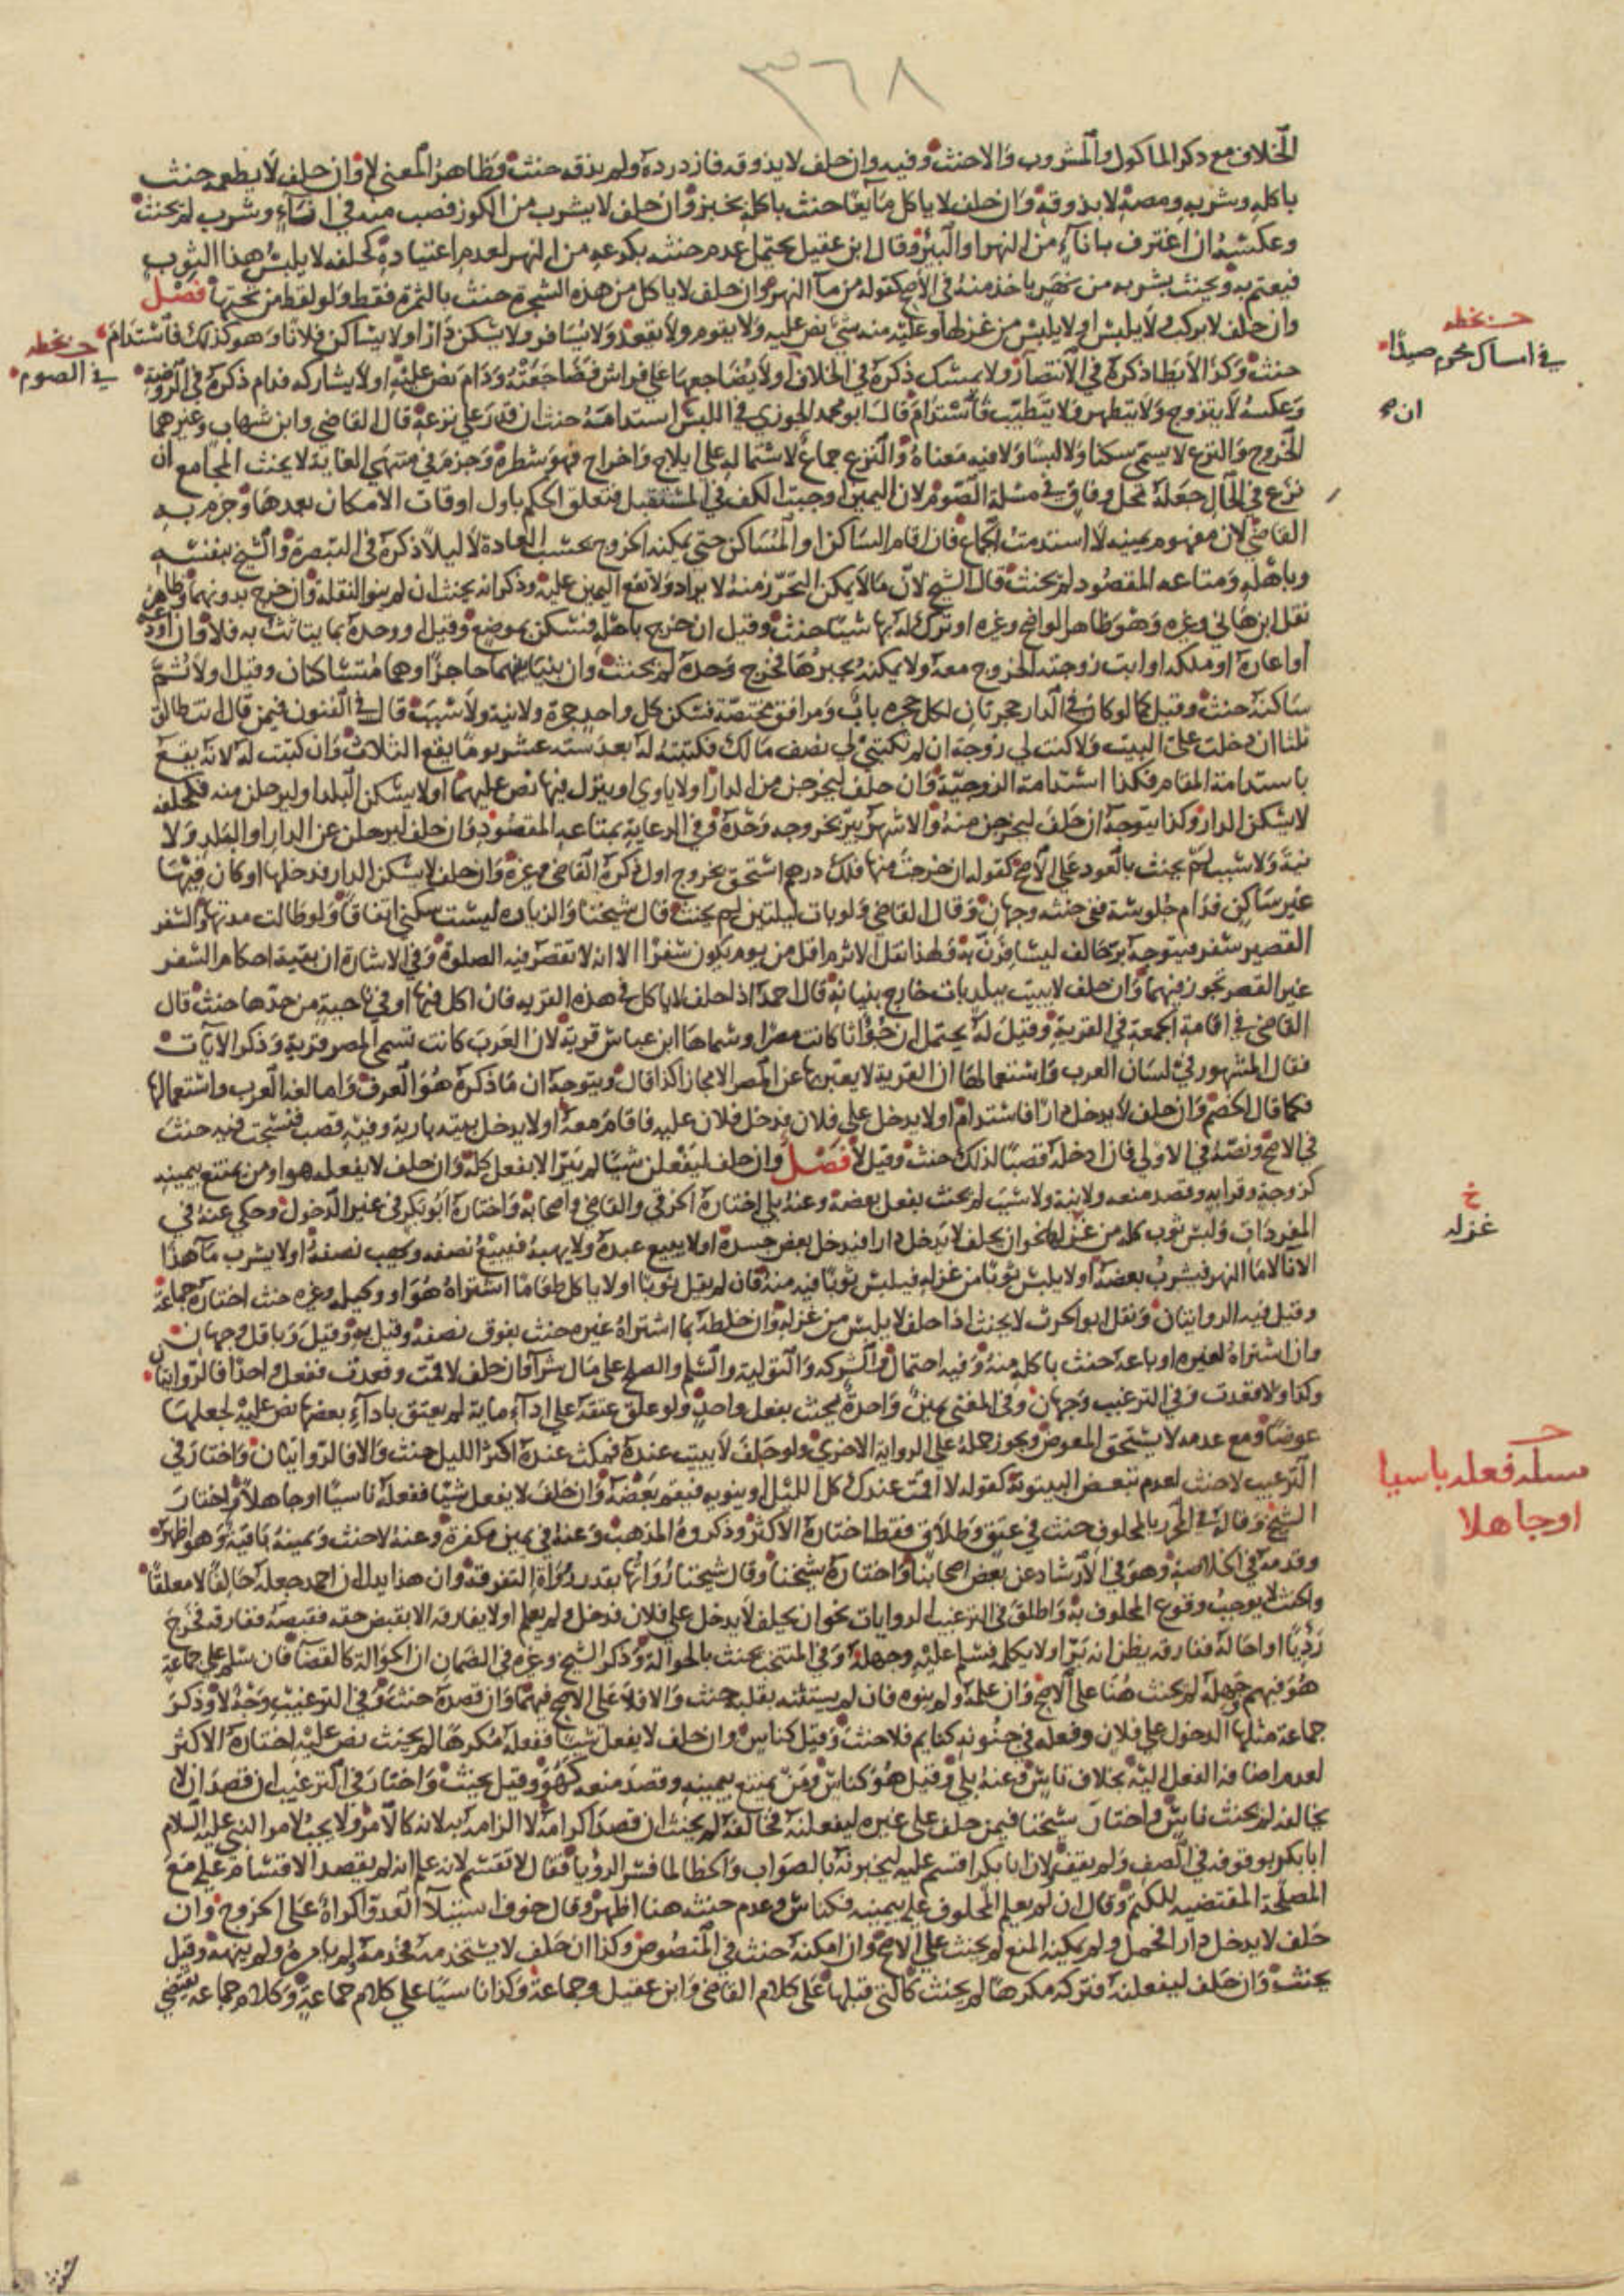 ٣٦٨
الخلاف مع ذكر المأكول والمشروب والا حنث وفيه وان حلف لا يذوقه فازدرده ولم يذقه حنث وظاهر المغني لا وان حلف لا يطعمه حنث
باكله وشربه ومصه لا بذوقه وان حلف لا ياكل مايعا حنث باكله بخبز وان حلف لا يشرب من الكوز فصب منه في اناء وشرب لم يحنث
وعكسه ان اغترف باناء من النهر او البئر وقال ابن عقيل يحتمل عدم حنثه بكرعه من النهر لعدم اعتياده كحلفه لا يلبس هذا الثوب
فيعتم به ويحنث بشربه من نهر ياخذ منه في الاصح كقوله من ما النهر وان حلف لا ياكل من هذه الشجرة حنث بالثمرة فقط ولو لقط من تحتها فصل
وان حلف لا يركب ولا يلبس او لا يلبس من غزلها وعليه منه شي نص عليه ولا يقوم ولا يقعد ولا يسافر ولا يسكن دارا او لا يساكن فلانا وهو كذلك فاستدام
حنث وكذا لا يطا ذكره في الانتصار ولا يمسك ذكره في الخلاف او لا يضاجعها على فراش فضاجعته ودام نص عليه او لا يشاركه فدام ذكره في الروضة
وعكسه لا يتزوج ولا يتطهر ولا يتطيب فاستدام قال ابو محمد الجوزي في اللبس استدامة حنث ان قدر على نزعه قال القاضي وابن شهاب وغيرهما
الخروج والنزع لا يسمى سكنا ولا لبسا ولا فيه معناه والنزع جماع لاشتماله على ايلاج واخراج فهو شطره وجزم في منتهى الغاية لا يحنث المجامع ان
نزع في الحال جعله محل وفاق في مسلة الصوم لان اليمين اوجبت الكف في المستقبل فتعلق الحكم باول اوقات الامكان بعدها وجزم به
القاضي لان مفهوم يمينه لا استدمت الجماع فان اقام الساكن او المساكن حتى يمكنه الخروج بحسب العادة لا ليلا ذكره في التبصرة والشيخ بنفسه
وباهله ومتاعه المقصود لم يحنث قال الشيخ لان ما لا يمكن التحرز منه لا يراد ولا تقع اليمين عليه وذكر انه يحنث ان لم ينو النقلة وان خرج بدونهما وظاهر
نقل ابن هاني وغيره وهو ظاهر الواضح وغيره او ترك له بها شيا حنث وقيل ان خرج باهله فسكن بموضع وقيل او وحده بما يتاثث به فلا وان اودعه
او اعاره او ملكه او ابت زوجته الخروج معه ولا يمكنه يجبرها فخرج وحده لم يحنث وان بنيا بينهما حاجزا وهما متساكنان وقيل او لا ثم
ساكنه حنث وقيل كما لو كان في الدار حجرتان لكل حجرة باب ومرافق مختصة فسكن كل واحد حجرة ولا نية ولا سبب قال في الفنون فيمن قال انت طالق
ثلثا ان دخلت على البيت ولا كنت لي زوجة ان لم تكتبي لي نصف مالك فكتبته له بعد ستة عشر يوما يقع الثلاث وان كتبت له لانه يقع
باستدامة المقام فكذا استدامة الزوجية وان حلف ليخرجن من الدار او لا ياوي او ينزل فيها نص عليهما او لا يسكن البلد او ليرحلن منه فكحلفه
لا يسكن الدار وكذا يتوجه ان حلف ليخرجن منه والاشهر يبر بخروجه وحده وفي الرعاية بمتاعه المقصود وان حلف ليرحلن عن الدار او البلد ولا
نية ولا سبب لم يحنث بالعود على الاصح كقوله ان خرجت منها فلك درهم استحق بخروج اول ذكره القاضي وغيره وان حلف لا يسكن الدار فدخلها او كان فيها
غير ساكن فدام جلوسه ففي حنثه وجهان وقال القاضي ولو بات ليلتين لم يحنث قال شيخنا والزيارة ليست سكنى اتفاقا ولو طالت مدتها والسفر
القصير سفر فيتوجه بر حالف ليسافرن به ولهذا نقل الاثرم اقل من يوم يكون سفرا الا انه لا تقصر فيه الصلوة وفي الاشارة ان بقية احكام السفر
غير القصر تجوز فيهما وان حلف لا يبيت ببلد بات خارج بنيانه قال احمد اذا حلف لا ياكل في هذه القرية فان اكل فيها او في ناحية من حدها حنث قال
القاضي في اقامة الجمعة في القرية وقيل له يحتمل ان جؤاثا كانت مصرا وسماها ابن عباس قرية لان العرب كانت تسمي المصر قرية وذكر الآيات
فقال المشهور في لسان العرب واستعمالها ان القرية لا يعبر بها عن المصر الا مجازا كذا قال ويتوجه ان ما ذكره هو العرف واما لغة العرب واستعمالها
فكما قال الخصم وان حلف لا يدخل دارا فاستدام او لا يدخل على فلان فدخل فلان عليه فاقام معه او لا يدخل بيته بارية وفيه قصب فنسجت فيه حنث
في الاصح ونصه في الاولى فان ادخله قصبا لذلك حنث وقيل لا فصل وان حلف ليفعلن شيا لم يبر الا بفعل كله وان حلف لا يفعله هو او من يمتنع بيمينه
كزوجة وقرابة وقصد منعه ولا نية ولا سبب لم يحنث بفعل بعضه وعنه بلى اختاره الخرقي والقاضي واصحابه واختاره ابو بكر في غير الدخول وحكي عنه في
المفردات ولبس ثوب كله من غزلها نحو ان يحلف لا يدخل دارا فيدخل بعض جسده او لا يبيع عبده ولا يهبه فيبيع نصفه ويهب نصفه او لا يشرب ما هذا
الانا لا ما النهر فيشرب بعضه او لا يلبس ثوبا من غزله فيلبس ثوبا فيه منه فان لم يقل ثوبا او لا ياكل طعاما اشتراه هو او وكيله وغيره حنث اختاره جماعة
وقيل فيه الروايتان ونقل ابو الحرث لا يحنث اذا حلف لا يلبس من غزله وان خلطه بما اشتراه غيره حنث بفوق نصفه وقيل به وقيل وباقل وجهان
وان اشتراه لغيره او باعه حنث باكله منه وفيه احتمال والشركة والتولية والسلم والصلح على مال شرآ وان حلف لا قمت وقعدت ففعل واحدا فالروايتان
وكذا ولا قعدت وفي الترغيب وجهان وفي المغني يمين واحدة يحنث بفعل واحد ولو علق عتقه على اداء ماية لم يعتق باداء بعضها نص عليه لجعلها
عوضا ومع عدمه لا يستحق المعوض ويجوز حمله على الرواية الاخرى ولو حلف لا يبيت عنده فمكث عنده اكثر الليل حنث والا فالروايتان واختار في
الترغيب لا حنث لعدم تبعض البيتوتة كقوله لا اقمت عندك كل الليل او ينويه فيقيم بعضه وان حلف لا يفعل شيا ففعله ناسيا او جاهلا واختار
الشيخ وقاله في المحرر بالمحلوف حنث في عتق وطلاق فقط اختاره الاكثر وذكروه المذهب وعنه في يمين مكفرة وعنه لا حنث ويمينه باقية وهو اظهر
وقدمه في الخلاصة وهو في الارشاد عن بعض اصحابنا واختاره شيخنا وقال شيخنا رواتها بقدر رواة التفرقة وان هذا يدل ان احمد جعله حالفا لا معلقا
والحنث لا يوجب وقوع المحلوف به واطلق في الترغيب الروايات نحو ان يحلف لا يدخل على فلان فدخل ولم يعلم او لا يفارقه الا بقبض حقه فقبضه ففارقه فخرج
رديا او احاله ففارقه يظن انه بر او لا يكلمه فسلم عليه وجهله وفي المنتخب يحنث بالحوالة وذكر الشيخ وغيره في الضمان ان الحوالة كالقضا فان سلم على جماعة
هو فيهم جهله لم يحنث هنا على الاصح وان علمه ولم ينوه فان لم يستثنه بقلبه حنث والا فلا على الاصح فيهما وان قصده حنث وفي الترغيب وجه لا وذكر
جماعة مثلها الدخول على فلان وفعله في جنونه كنايم فلا حنث وقيل كناس وان حلف لا يفعل شيا ففعله مكرها لم يحنث نص عليه اختاره الاكثر
لعدم اضافة الفعل اليه بخلاف ناس وعنه بلى وقيل هو كناس ومن يمتنع بيمينه وقصد منعه كهو وقيل يحنث واختار في الترغيب ان قصد ان لا
يخالفه لم يحنث ناس واختار شيخنا فيمن حلف على غيره ليفعلنه فخالفه لم يحنث ان قصد اكرامه لا الزامه به لانه كالامر ولا يجب لامر النبي عليه السلام
ابا بكر بوقوفه في الصف ولم يقف ولان ابا بكر اقسم عليه ليخبرنه بالصواب والخطا لما فسر الرؤيا فقال لا تقسم لانه علم انه لم يقصد الاقسام عليه مع
المصلحة المقتضية للكتم وقال ان لم يعلم المحلوف عليه بيمينه فكناس وعدم حنثه هنا اظهر وقال خوف استيلآ العدو اكراه على الخروج وان
حلف لا يدخل دارا فحمل ولم يمكنه المنع لم يحنث على الاصح وان امكنه حنث في المنصوص وكذا ان حلف لا يستخدمه فخدمه ولم يامره ولم ينهه وقيل
يحنث وان حلف ليفعلنه فتركه مكرها لم يحنث كالتي قبلها على كلام القاضي وابن عقيل وجماعة وكذا ناسيا على كلام جماعة وكلام جماعة يقتضي
في امساك محرم صيدا
في الصوم
ان
غزله
مسلة فعله ناسيا
او جاهلا